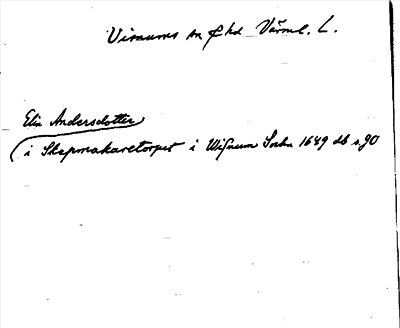 Visnums sn o hd Värml. L.
Elin Andersdotter
i Skepmakaretorpet i Wisnum Socken 1689 db s. 90